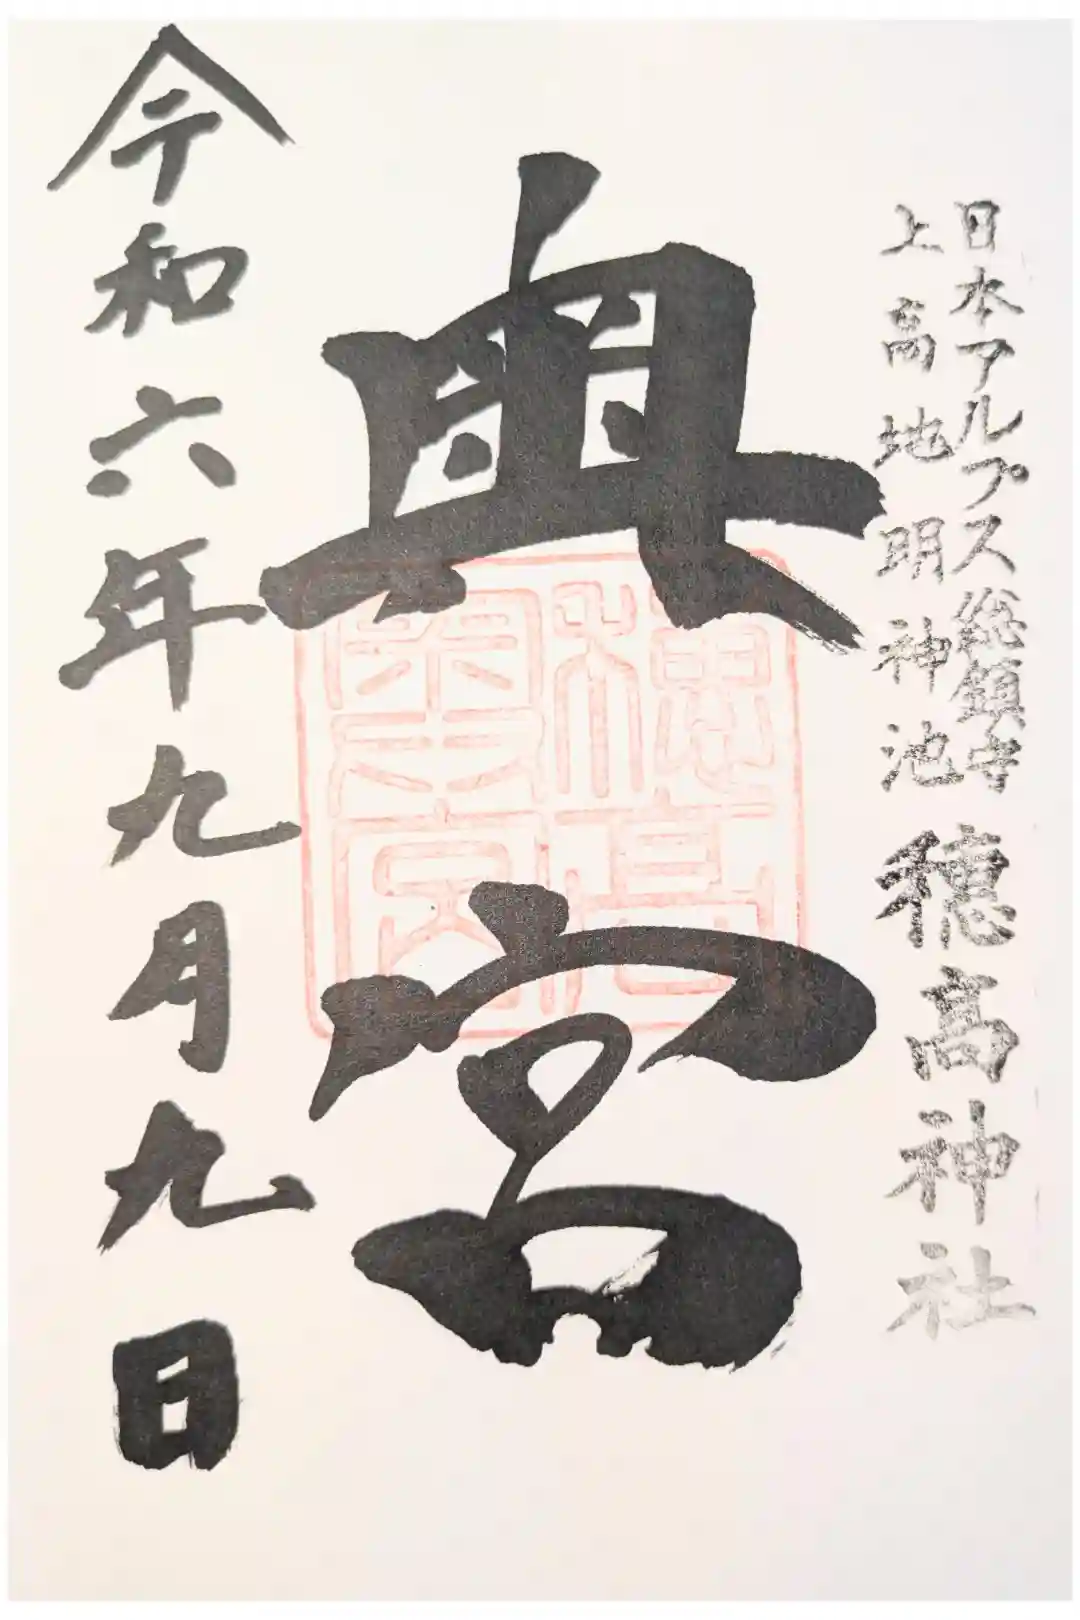 日本アルプス総鎮守
上高地明神池
穂高神社
奥宮
穂高
奥宮
令和六年九月九日